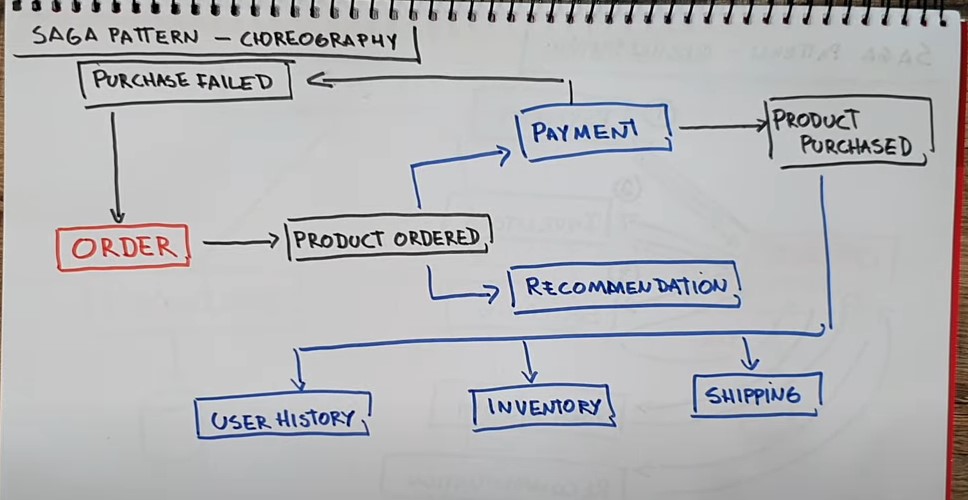 SAGA PATTERN - CHOREOGRAPHY
PURCHASE FAILED
PAYMENT
PRODUCT
PURCHASED
ORDER
PRODUCT ORDERED
RECOMMENDATION
USER HISTORY
INVENTORY
SHIPPING